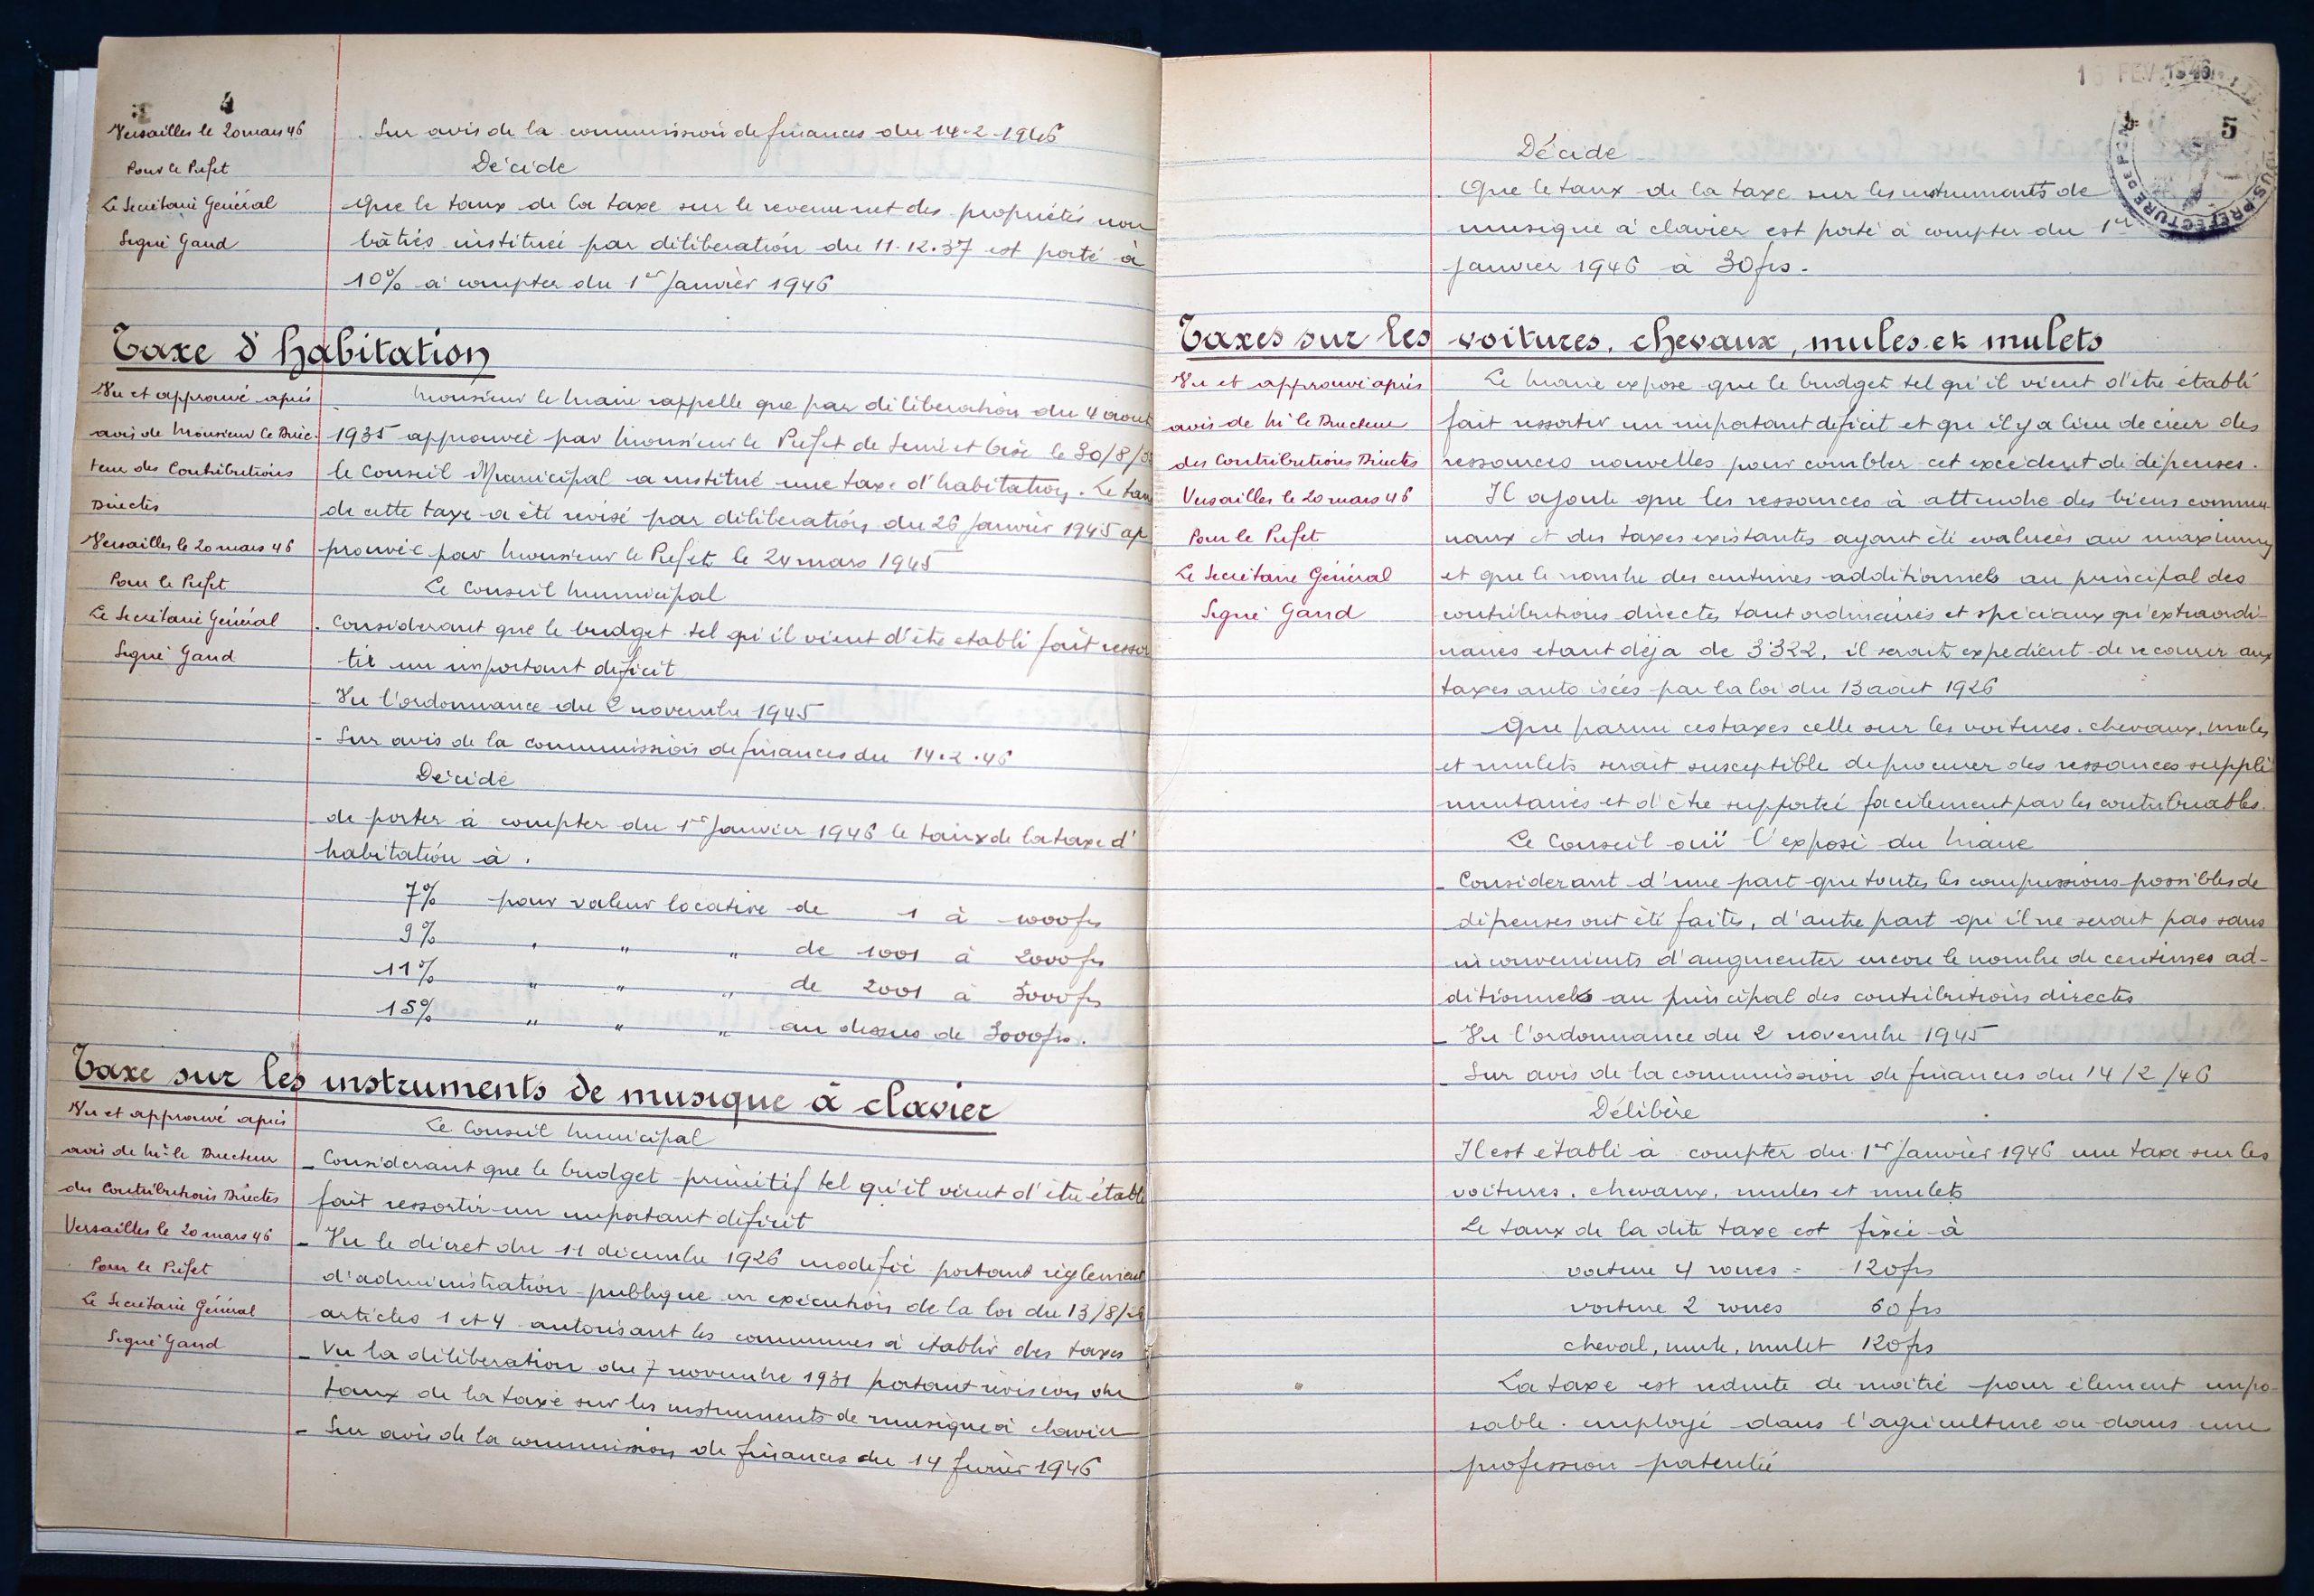 4
Versailles le 20 mars 46
Pour le Préfet
Le Secrétaire Général
Signé Gand
. Sur avis de la commission de finances du 14-2-1946
Décide
Que le taux de la taxe sur le revenu net des propriétés non
bâties instituée par délibération du 11.12.37 est porté à
10% à compter du 1er Janvier 1946
Taxe d'habitation
Vu et approuvé après
avis de Monsieur le Direc-
teur des Contributions
Directes
Versailles le 20 mars 46
Pour le Préfet
Le Secrétaire Général
Signé Gand
Monsieur le Maire rappelle que par délibération du 4 aout
1935 approuvée par Monsieur le Préfet de Seine et Oise le 30/8/35
le Conseil Municipal a institué une taxe d'habitation. Le taux
de cette taxe a été revisé par délibération du 26 Janvier 1945 ap
prouvée par Monsieur le Préfet le 24 mars 1945
Le Conseil Municipal
- Considerant que le budget tel qu'il vient d'être etabli fait ressor
tir un important deficit
- Vu l'ordonnance du 2 novembre 1945
- Sur avis de la commission de finances du 14.2.46
Décide
de porter à compter du 1er Janvier 1946 le taux de la taxe d'
habitation à .
7% pour valeur locative de 1 à 1000 frs
9% " " " de 1001 à 2000 frs
11% " " " de 2001 à 3000 frs
15% " " " au dessus de 3000 frs.
Taxe sur les instruments de musique à clavier
Vu et approuvé après
avis de Mr le Directeur
des Contributions Directes
Versailles le 20 mars 46
Pour le Préfet
Le Secrétaire Général
Signé Gand
Le Conseil Municipal
- Considerant que le budget primitif tel qu'il vient d'être établi
fait ressortir un important déficit
- Vu le décret du 11 décembre 1926 modifié portant règlement
d'administration publique en exécution de la loi du 13/8/26
articles 1 et 4 autorisant les communes à établir des taxes
- Vu la délibération du 7 novembre 1931 portant révision du
taux de la taxe sur les instruments de musique à clavier
- Sur avis de la commission de finances du 14 février 1946
FEV. 1946
5
SOUS-PREFECTURE DE
Décide
Que le taux de la taxe sur les instruments de
musique à clavier est porté à compter du 1er
janvier 1946 à 30 frs.
Taxes sur les voitures, chevaux, mules et mulets
Vu et approuvé après
avis de Mr le Directeur
des Contributions Directes
Versailles le 20 mars 46
Pour le Préfet
Le Secrétaire Général
Signé Gand
Le Maire expose que le budget tel qu'il vient d'etre établi
fait ressortir un important deficit et qu'il y a lieu de créer des
ressources nouvelles pour combler cet excédent de dépenses.
Il ajoute que les ressources à attendre des biens commu-
naux et des taxes existantes ayant été evaluées au maximum
et que le nombre des centimes additionnels au principal des
contributions directes tant ordinaires et spéciaux qu'extraordi-
naires etant déja de 3322, il serait expedient de recourir aux
taxes autorisées par la loi du 13 aout 1926
Que parmi ces taxes celle sur les voitures, chevaux, mules
et mulets serait susceptible de procurer des ressources supplé
mentaires et d'être supportée facilement par les contribuables.
Le Conseil ouï l'exposé du Maire
- Considerant d'une part que toutes les compressions possibles de
dépenses ont été faites, d'autre part qu'il ne serait pas sans
inconvenients d'augmenter encore le nombre de centimes ad-
ditionnels au principal des contributions directes
- Vu l'ordonnance du 2 novembre 1945
- Sur avis de la commission de finances du 14/2/46
Délibère
Il est etabli à compter du 1er Janvier 1946 une taxe sur les
voitures, chevaux, mules et mulets
Le taux de la dite taxe est fixée à
voiture 4 roues = 120 frs
voiture 2 roues 60 frs
cheval, mule, mulet 120 frs
La taxe est reduite de moitié pour élement impo-
sable employé dans l'agriculture ou dans une
profession patentée